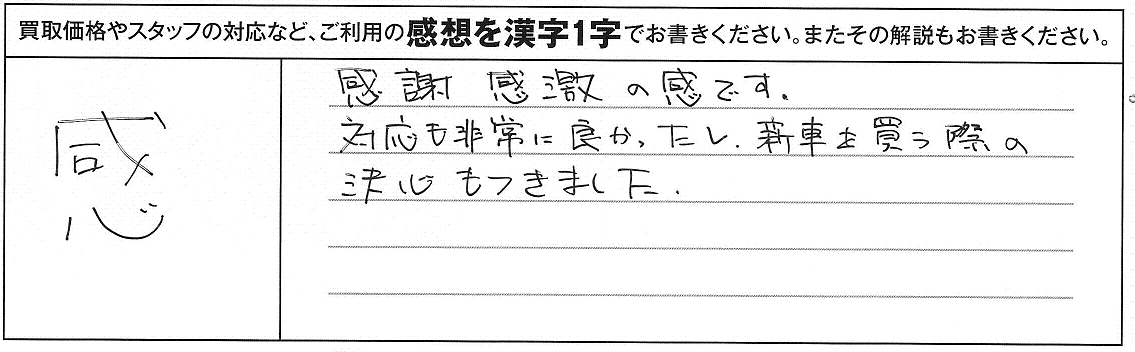 買取価格やスタッフの対応など、ご利用の感想を漢字1字でお書きください。またその解説もお書きください。
感
感謝 感激の感です.
対応も非常に良かったし.新車を買う際の
決心もつきました.